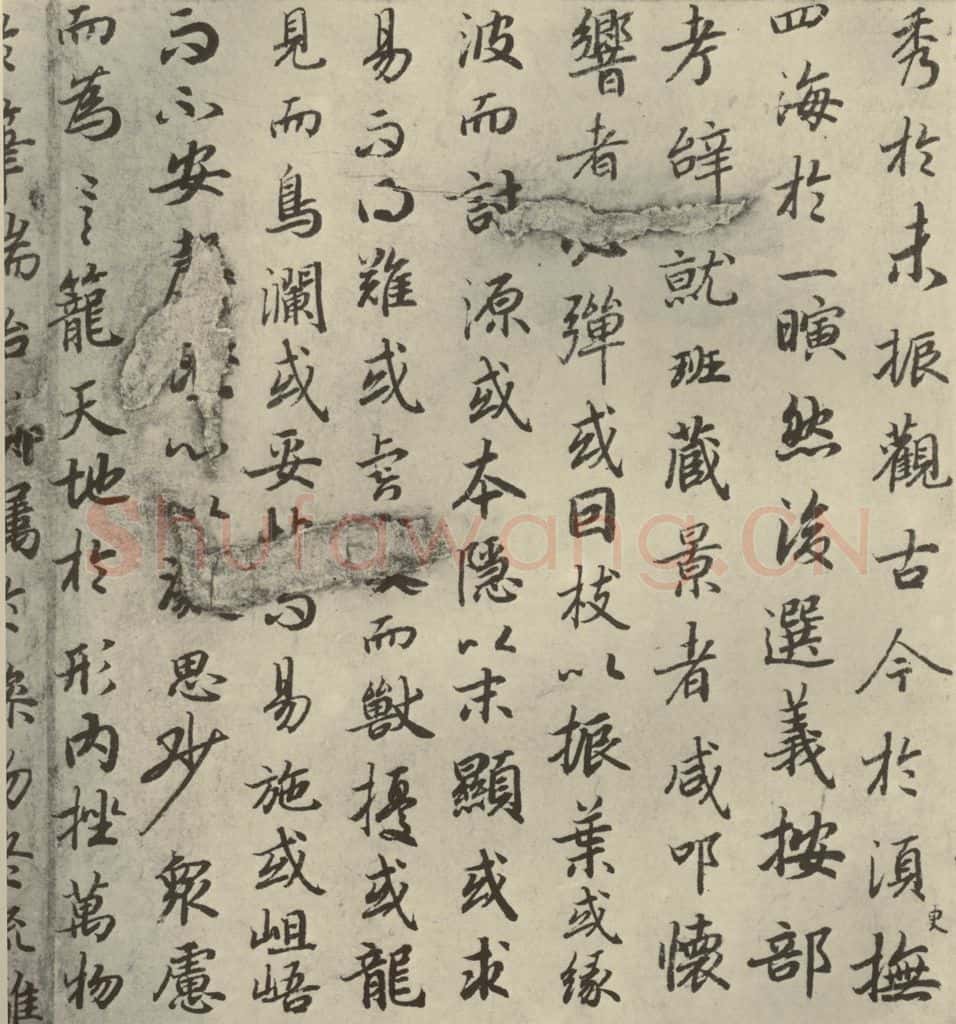 秀於未振觀古今於須臾撫
四海於一瞚然後選義按部
考辭就班藏景者咸叩懷
響者必彈或因枝以振葉或緣
波而討源或本隱以末顯或求
易而得難或虎而獸擾或龍
見而鳥瀾或妥而易施或岨峿
而不安心以思妙衆慮
而為言籠天地於形內挫萬物
於筆端始躅於燥吻終流離
Shufawang.CN